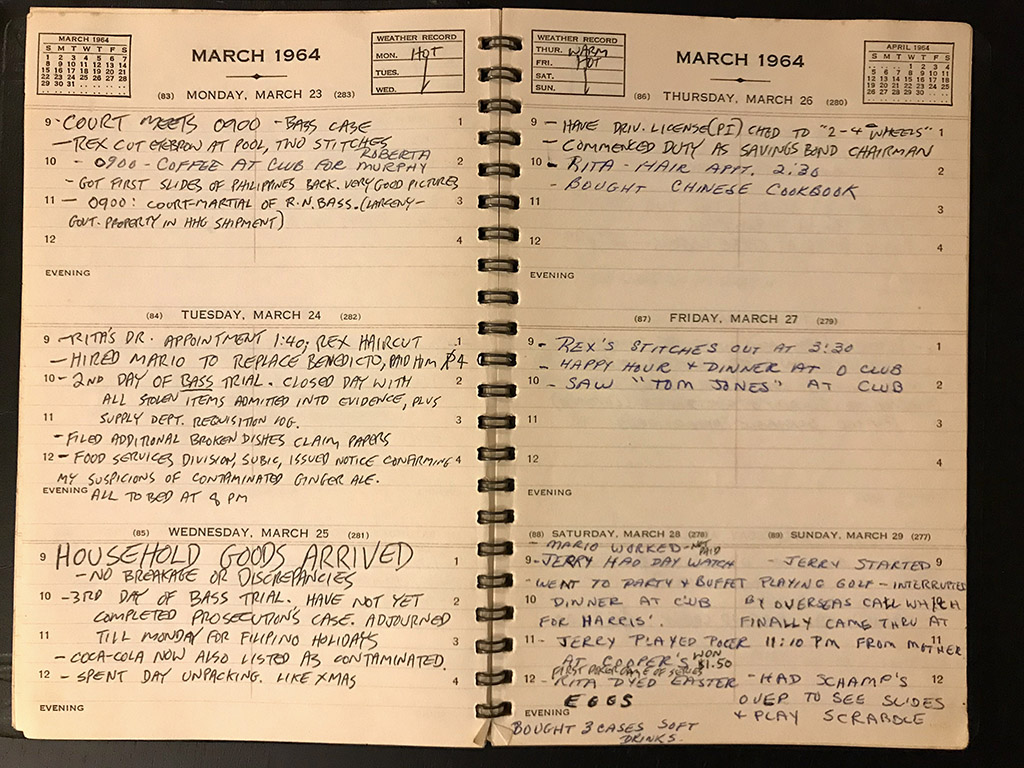 MARCH 1964
S M T W T F S
1 2 3 4 5 6 7
8 9 10 11 12 13 14
15 16 17 18 19 20 21
22 23 24 25 26 27 28
29 30 31
MARCH 1964
WEATHER RECORD
MON. HOT
TUES.
WED.
(83) MONDAY, MARCH 23 (283)
9 - COURT MEETS 0900 - BASS CASE 1
- REX CUT EYEBROW AT POOL, TWO STITCHES
10 - 0900 - COFFEE AT CLUB FOR ROBERTA MURPHY 2
- GOT FIRST SLIDES OF PHILIPPINES BACK. VERY GOOD PICTURES
11 - 0900: COURT-MARTIAL OF R.N. BASS. (LARCENY- 3
GOVT. PROPERTY IN HHG SHIPMENT)
12 4
EVENING
(84) TUESDAY, MARCH 24 (282)
9 - RITA'S DR. APPOINTMENT 1:40; REX HAIRCUT 1
- HIRED MARIO TO REPLACE BENEDICTO, PAID HIM ₱4
10 - 2ND DAY OF BASS TRIAL. CLOSED DAY WITH 2
ALL STOLEN ITEMS ADMITTED INTO EVIDENCE, PLUS
11 SUPPLY DEPT. REQUISITION LOG. 3
- FILED ADDITIONAL BROKEN DISHES CLAIM PAPERS
12 - FOOD SERVICES DIVISION, SUBIC, ISSUED NOTICE CONFIRMING 4
MY SUSPICIONS OF CONTAMINATED GINGER ALE.
EVENING ALL TO BED AT 8 PM
(85) WEDNESDAY, MARCH 25 (281)
9 HOUSEHOLD GOODS ARRIVED 1
- NO BREAKAGE OR DISCREPANCIES
10 - 3RD DAY OF BASS TRIAL. HAVE NOT YET 2
COMPLETED PROSECUTION'S CASE. ADJOURNED
11 TILL MONDAY FOR FILIPINO HOLIDAYS 3
- COCA-COLA NOW ALSO LISTED AS CONTAMINATED.
12 - SPENT DAY UNPACKING. LIKE XMAS 4
EVENING
WEATHER RECORD
THUR. WARM
FRI. HOT
SAT.
SUN.
MARCH 1964
APRIL 1964
S M T W T F S
1 2 3 4
5 6 7 8 9 10 11
12 13 14 15 16 17 18
19 20 21 22 23 24 25
26 27 28 29 30
(86) THURSDAY, MARCH 26 (280)
9 - HAVE DRIV. LICENSE (PI) CHGD TO "2-4 WHEELS" 1
- COMMENCED DUTY AS SAVINGS BOND CHAIRMAN
10 - RITA - HAIR APPT. 2:30 2
- BOUGHT CHINESE COOKBOOK
11 3
12 4
EVENING
(87) FRIDAY, MARCH 27 (279)
9 - REX'S STITCHES OUT AT 3:30 1
- HAPPY HOUR + DINNER AT O CLUB
10 - SAW "TOM JONES" AT CLUB 2
11 3
12 4
EVENING
(88) SATURDAY, MARCH 28 (278)
- MARIO WORKED - NOT PAID
9 - JERRY HAD DAY WATCH
- WENT TO PARTY + BUFFET
10 DINNER AT CLUB
FOR HARRIS'.
11 - JERRY PLAYED POKER
AT COOPER'S WON $1.50
FIRST POKER GAME OF SERIES
12 - RITA DYED EASTER
EGGS
EVENING
BOUGHT 3 CASES SOFT
DRINKS.
(89) SUNDAY, MARCH 29 (277)
- JERRY STARTED 9
PLAYING GOLF - INTERRUPTED
BY OVERSEAS CALL WHICH 10
FINALLY CAME THRU AT
11:10 PM FROM MOTHER 11
- HAD SCHAMP'S 12
OVER TO SEE SLIDES
+ PLAY SCRABBLE